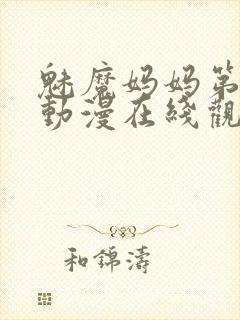 魅魔妈妈第
動漫在綫觀
和錦濤